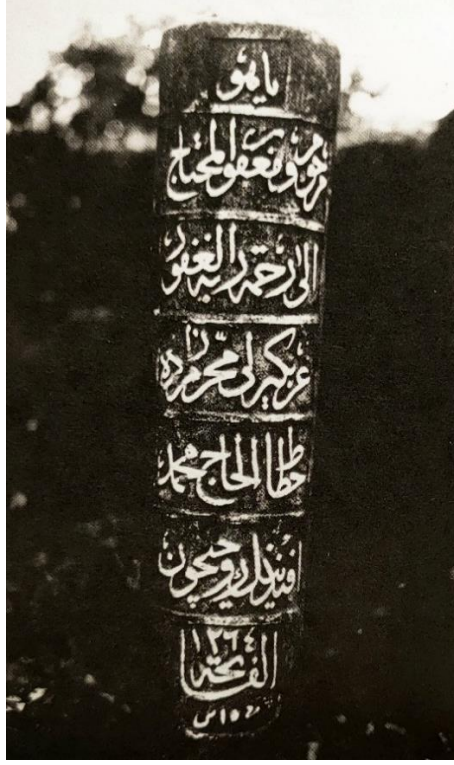 يا هو
مرحوم ومغفور المحتاج
الى رحمة ربه الغفور
عربكيرلى محرر زاده
خطاط الحاج محمد
افندينك روحيچون
١٢٦٤
الفاتحه
١٥